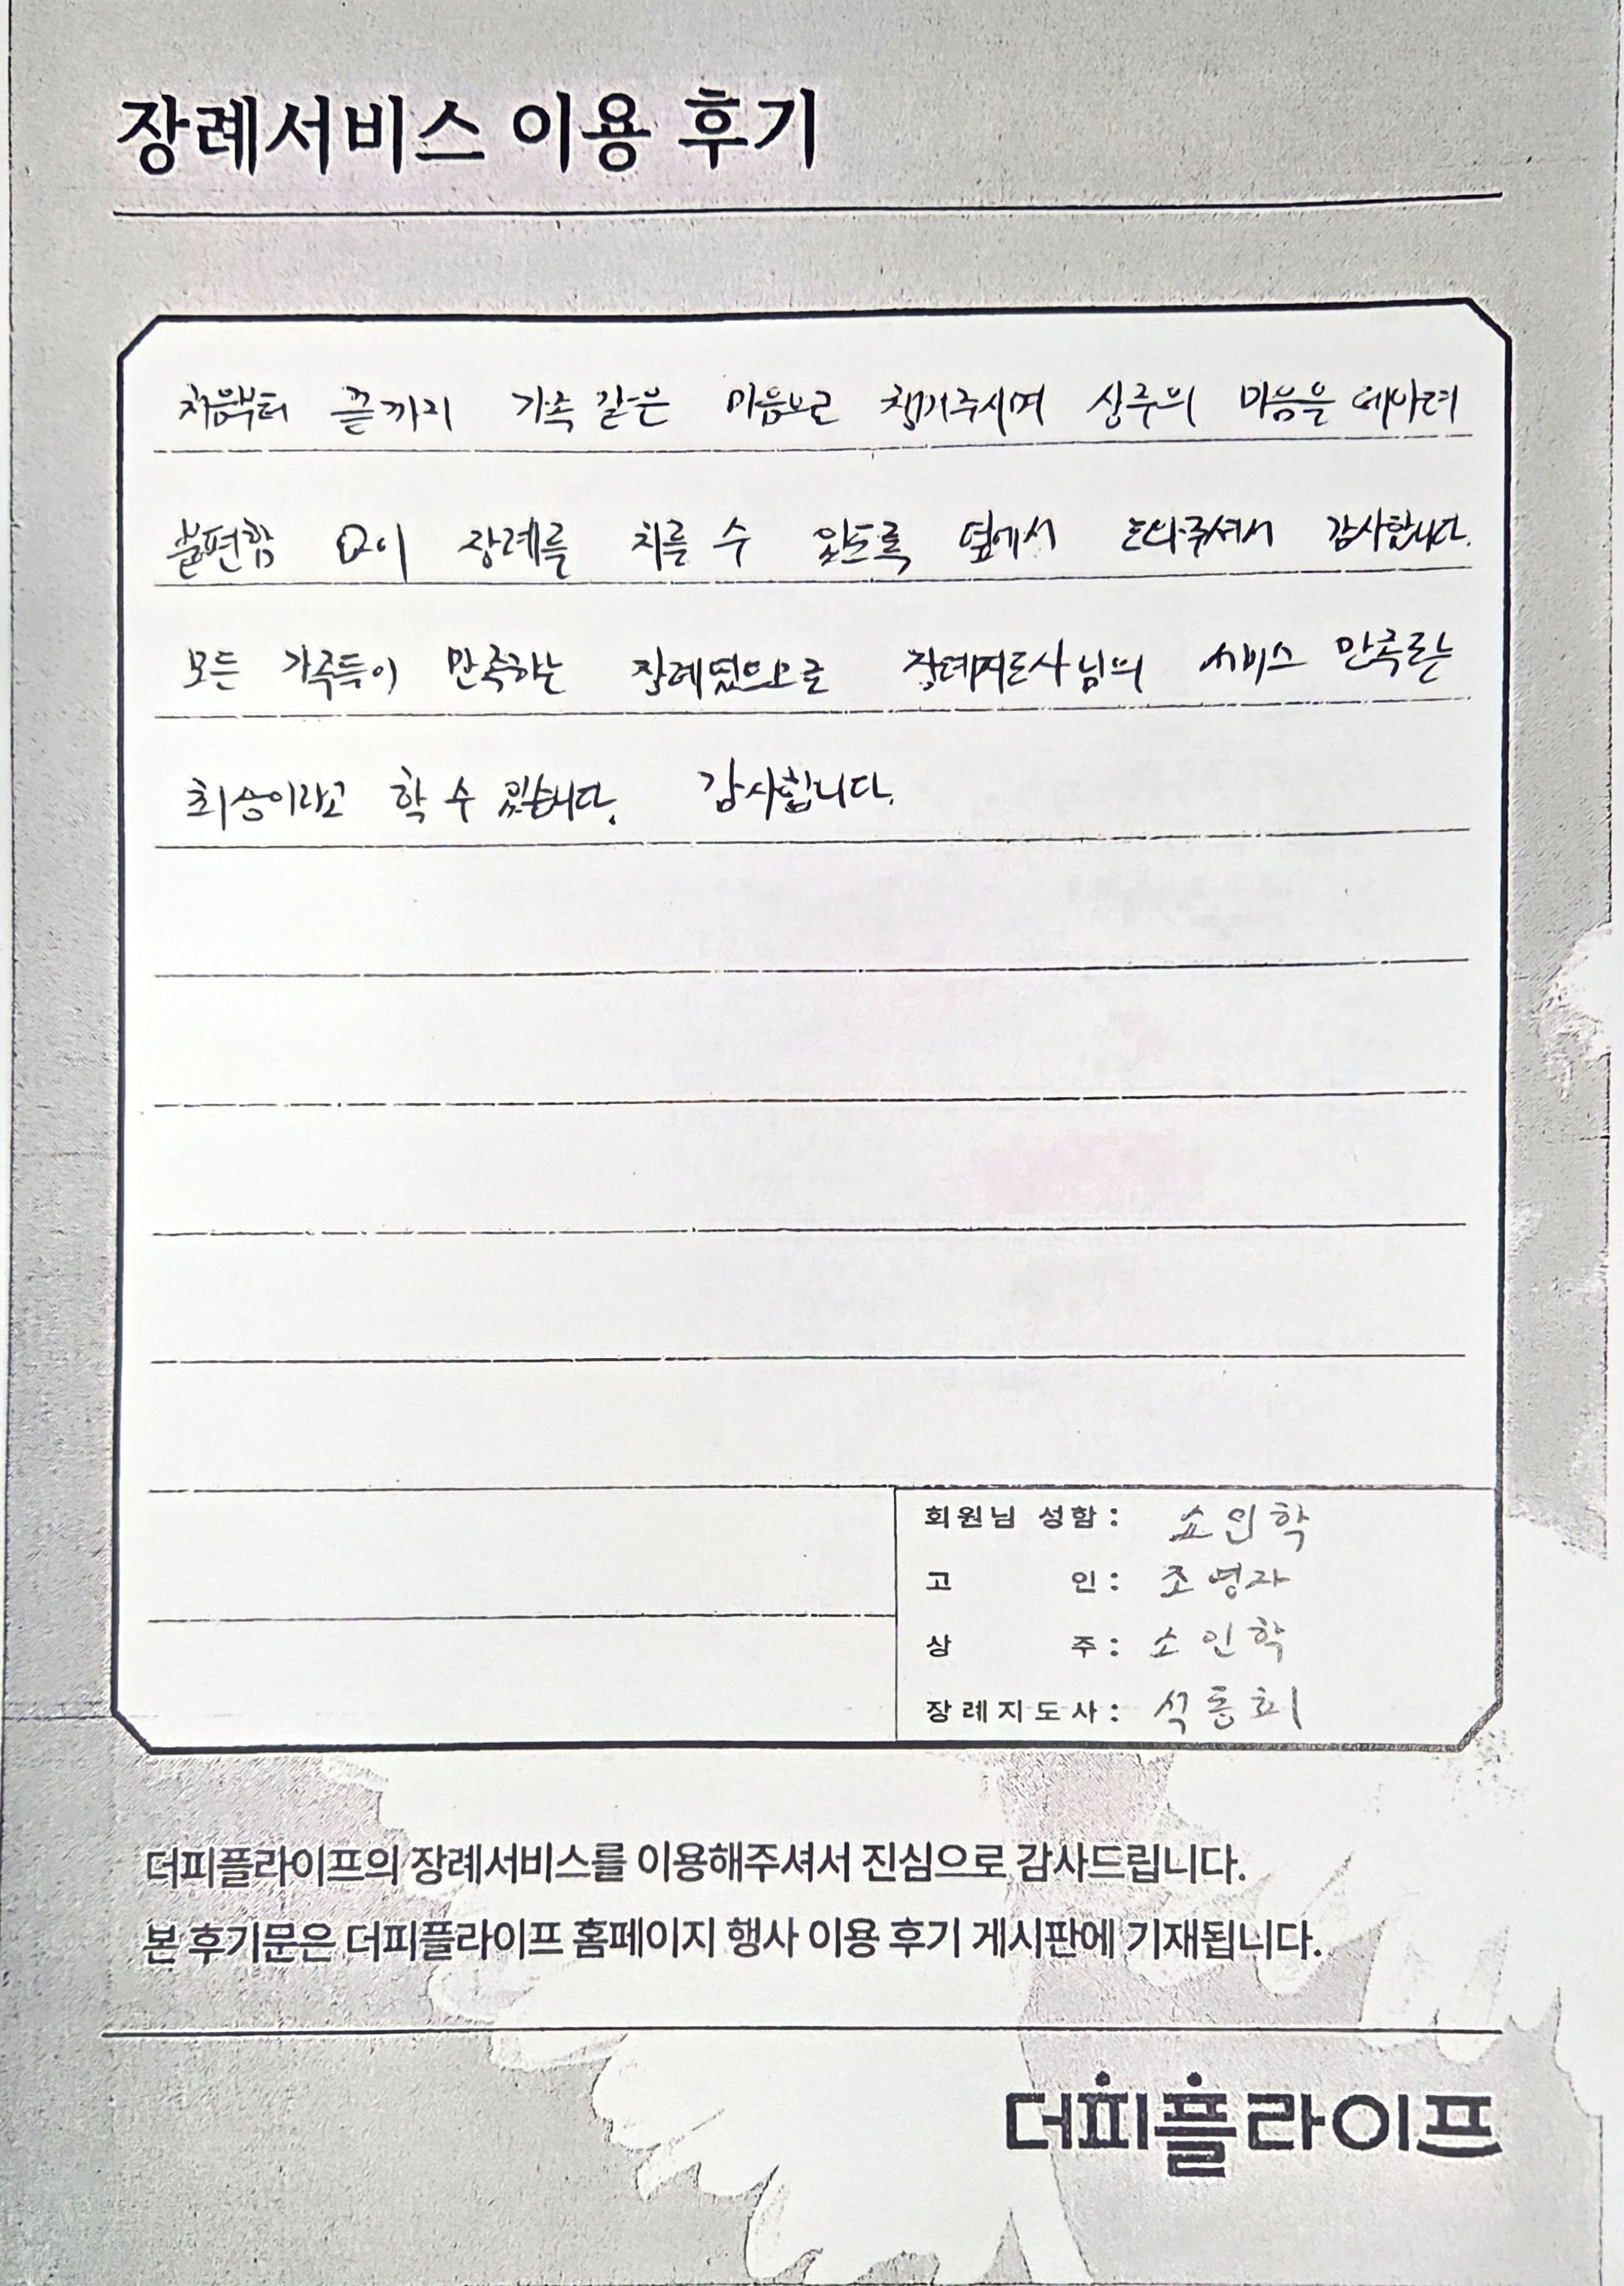 장례서비스 이용 후기
처음부터 끝까지 가족 같은 마음으로 챙겨주시며 상주의 마음을 헤아려
불편함 없이 장례를 치를 수 있도록 옆에서 도와주셔서 감사합니다.
모든 가족들이 만족하는 장례였으므로 장례지도사님의 서비스 만족도는
최상이라고 할 수 있습니다. 감사합니다.
회원님 성함 : 소인학
고 인 : 조영자
상 주 : 소인학
장례지도사 : 석동희
더피플라이프의 장례서비스를 이용해주셔서 진심으로 감사드립니다.
본 후기문은 더피플라이프 홈페이지 행사 이용 후기 게시판에 기재됩니다.
더피플라이프